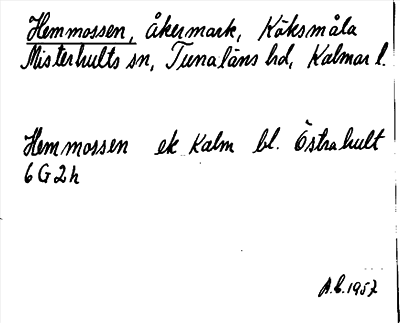 Hemmossen, åkermark, Köksmåla
Misterhults sn, Tunaläns hd, Kalmar l.
Hemmossen ek Kalm bl. Östrahult
6G2h
A.C. 1957